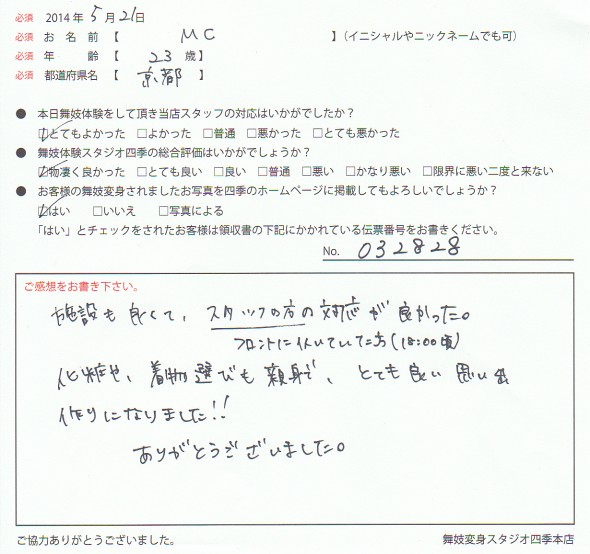 必須 2014年 5月21日
必須 お名前【 MC 】(イニシャルやニックネームでも可)
必須 年齢【 23 歳】
必須 都道府県名【 京都 】
● 本日舞妓体験をして頂き当店スタッフの対応はいかがでしたか?
☑とてもよかった □よかった □普通 □悪かった □とても悪かった
● 舞妓体験スタジオ四季の総合評価はいかがでしょうか?
☑物凄く良かった □とても良い □良い □普通 □悪い □かなり悪い □限界に悪い二度と来ない
● お客様の舞妓変身されましたお写真を四季のホームページに掲載してもよろしいでしょうか?
☑はい □いいえ □写真による
「はい」とチェックをされたお客様は領収書の下記にかかれている伝票番号をお書きください。
No. 032828
ご感想をお書き下さい。
施設も良くて、スタッフの方の対応が良かった。
フロントに いていた方(18:00頃)
化粧や、着物選びも親身で、とても良い思い出
作りになりました!!
ありがとうございました。
ご協力ありがとうございました。
舞妓変身スタジオ四季本店